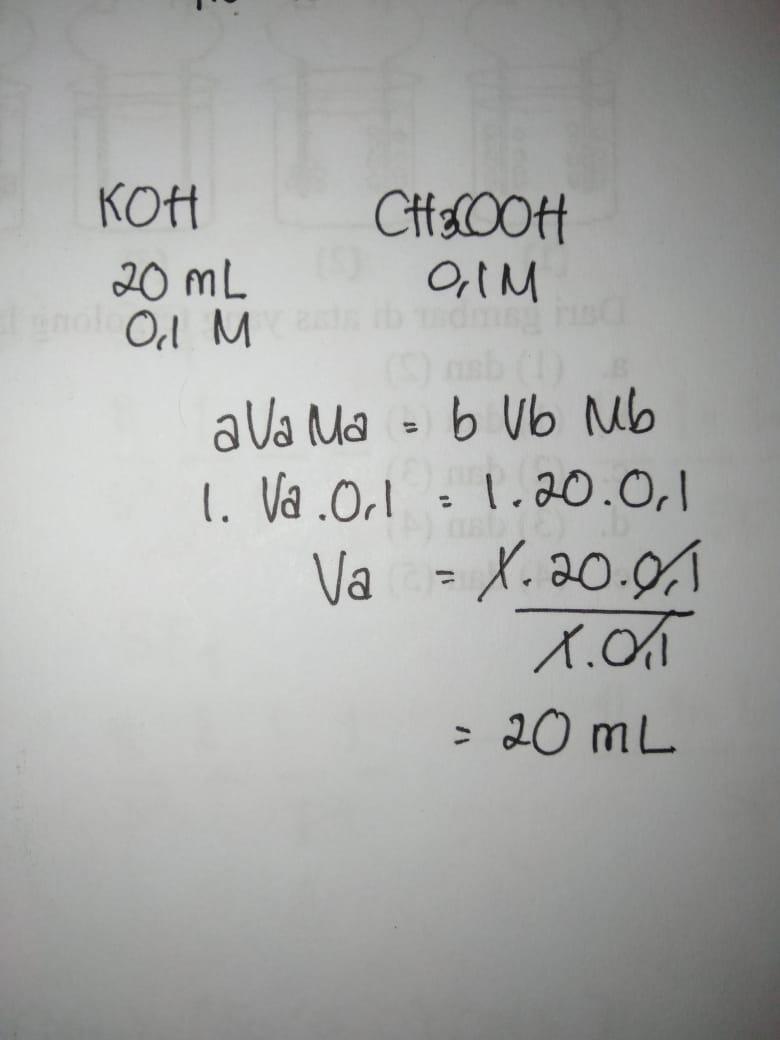 KOH CH3COOH
20 mL 0,1 M
0,1 M
a Va Ma = b Vb Mb
1. Va . 0,1 = 1. 20. 0,1
Va = 1. 20. 0,1
1. 0,1
= 20 mL